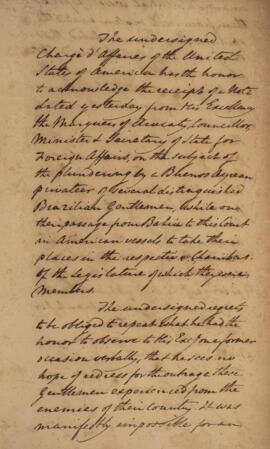 The undersigned
Chargé d'Affaires of the United
States of America has the honor
to acknowledge the receipt of a Note
dated yesterday from His Excellency
the Marquess of Aracaty, Councillor,
Minister & Secretary of State for
Foreign Affairs, on the subject of
the plundering by a Buenos Ayrean
privateer of several distinguished
Brazilian Gentlemen, while on
their passage from Bahia to this Court
in American vessels to take their
places in the respective Chambers
of the Legislature of which they were
Members.
The undersigned regrets
to be obliged to repeat what he had the
honor to observe to His Exc^y on a former
occasion verbally, that he sees no
hope of redress for the outrage these
Gentlemen experienced from the
enemies of their Country. It was
manifestly impossible for an